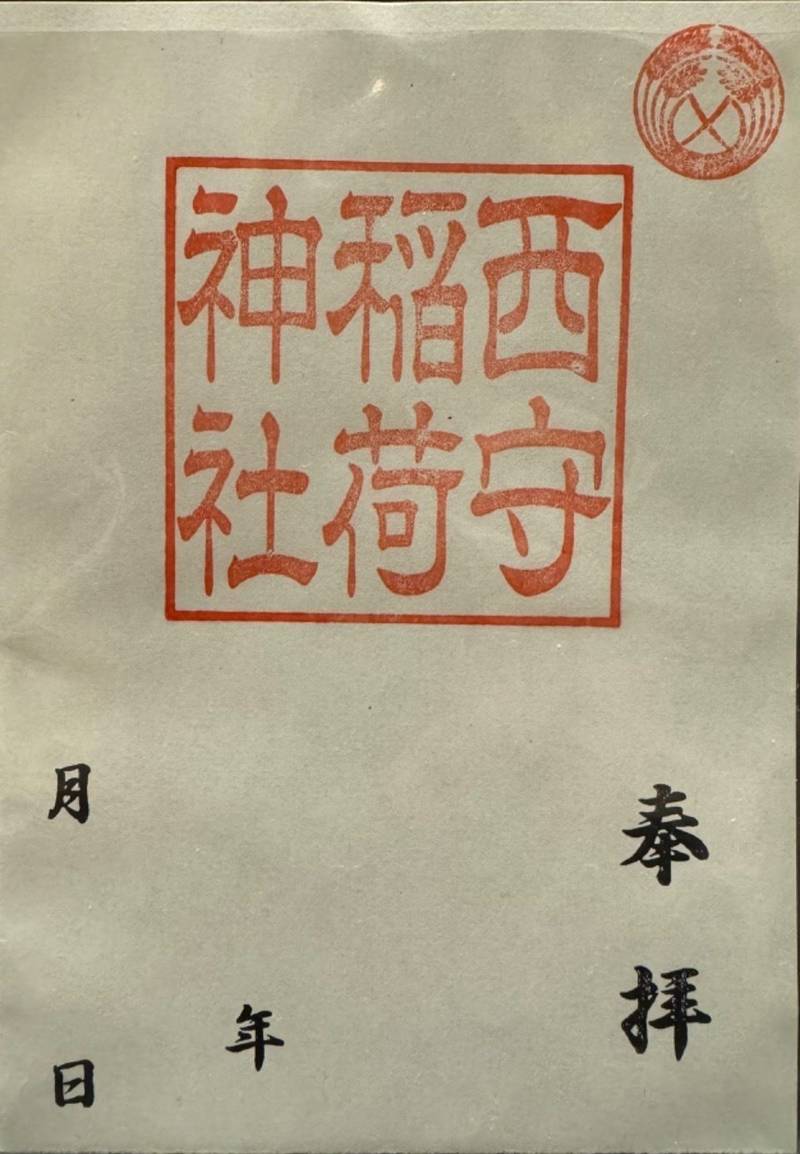 奉拝
西守
稲荷
神社
年
月日